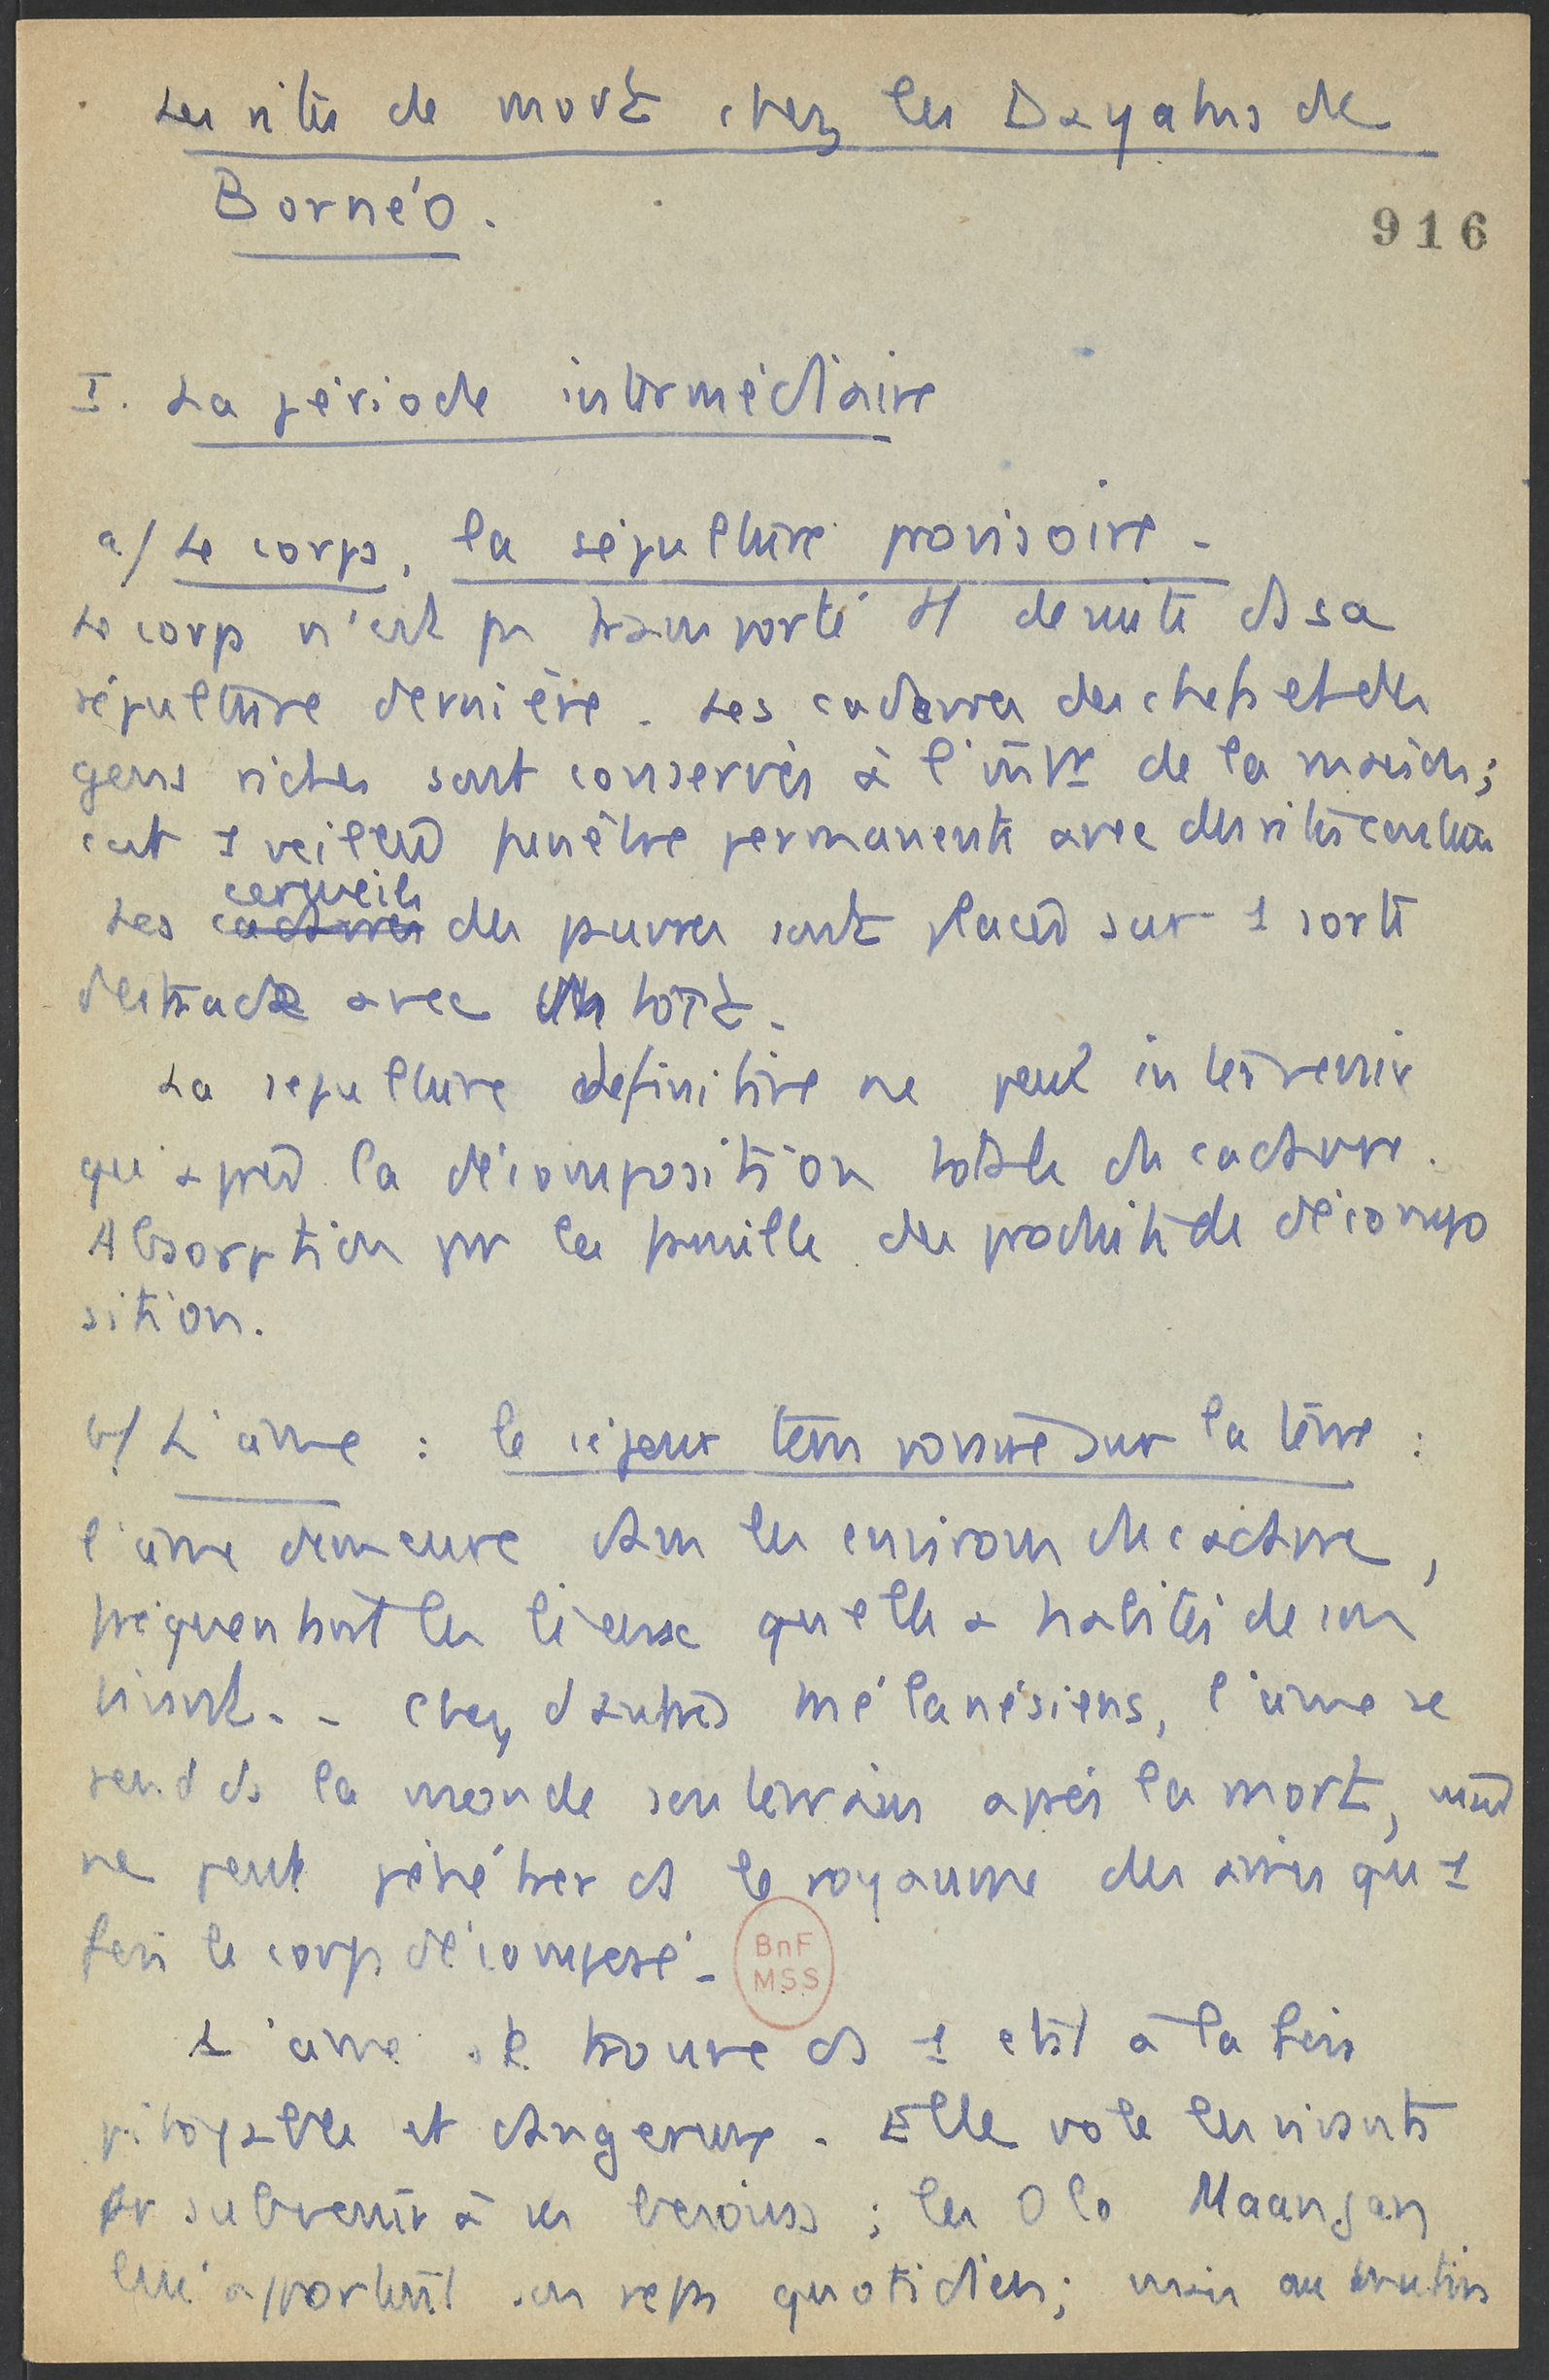 Les rites de mort chez les Dayaks de
Bornéo.
916
I. La période intermédiaire
a/ Le corps, la sépulture provisoire -
Le corps n'est pas transporté de suite ds sa
sépulture dernière. Les cadavres des chefs et des
gens riches sont conservés à l'intr de la maison;
c'est 1 veillée funèbre permanente avec des rites
cercueils
Les cadavres des pauvres sont placés sur 1 sorte
d'estrade avec un toit.
La sépulture définitive ne peut intervenir
qu'après la décomposition totale du cadavre.
Absorption par la famille des produits de décompo
sition.
b/ L'âme : le séjour sur la terre :
l'âme demeure dans les environs du cadavre,
fréquentant les lieux qu'elle a habités de son
vivant. - Chez d'autres Mélanésiens, l'âme se
rend ds la monde souterrain après la mort, mais
ne peut pénétrer ds le royaume des âmes qu'1
fois le corps décomposé -
BnF
MSS
L'âme se trouve ds 1 état à la fois
pitoyable et dangereux. Elle vole les vivants
pr subvenir à ses besoins ; les Olo Maanjan
lui apportent son repas quotidien; mais au